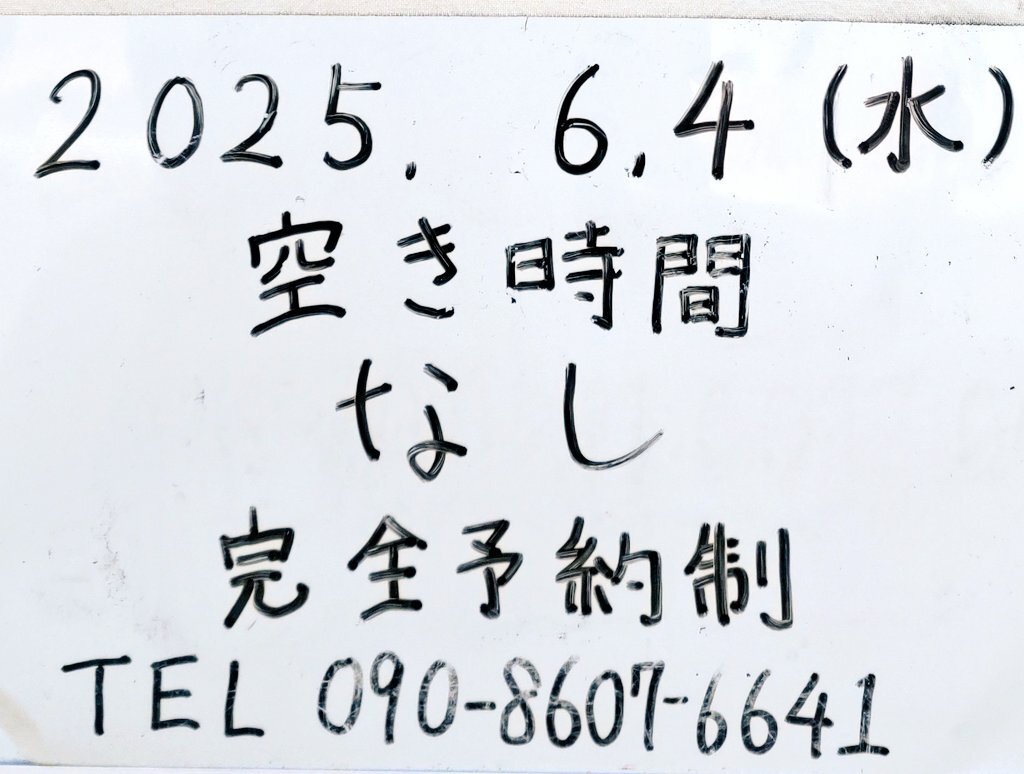 2025. 6.4 (水)
空き時間
なし
完全予約制
TEL 090-8607-6641